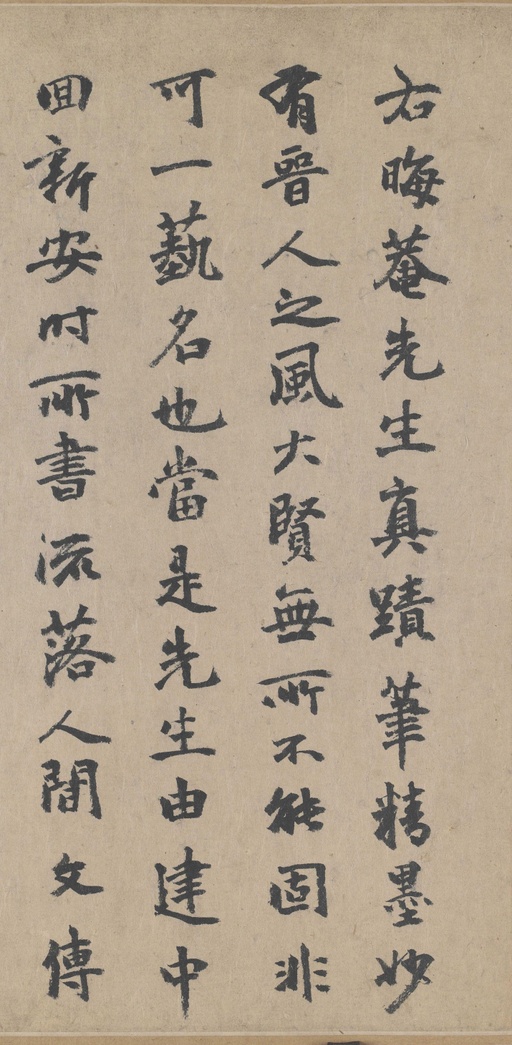 右晦菴先生真蹟筆精墨妙
有晉人之風大賢無所不能固非
可一藝名也當是先生由建中
回新安時所書流落人間文傳